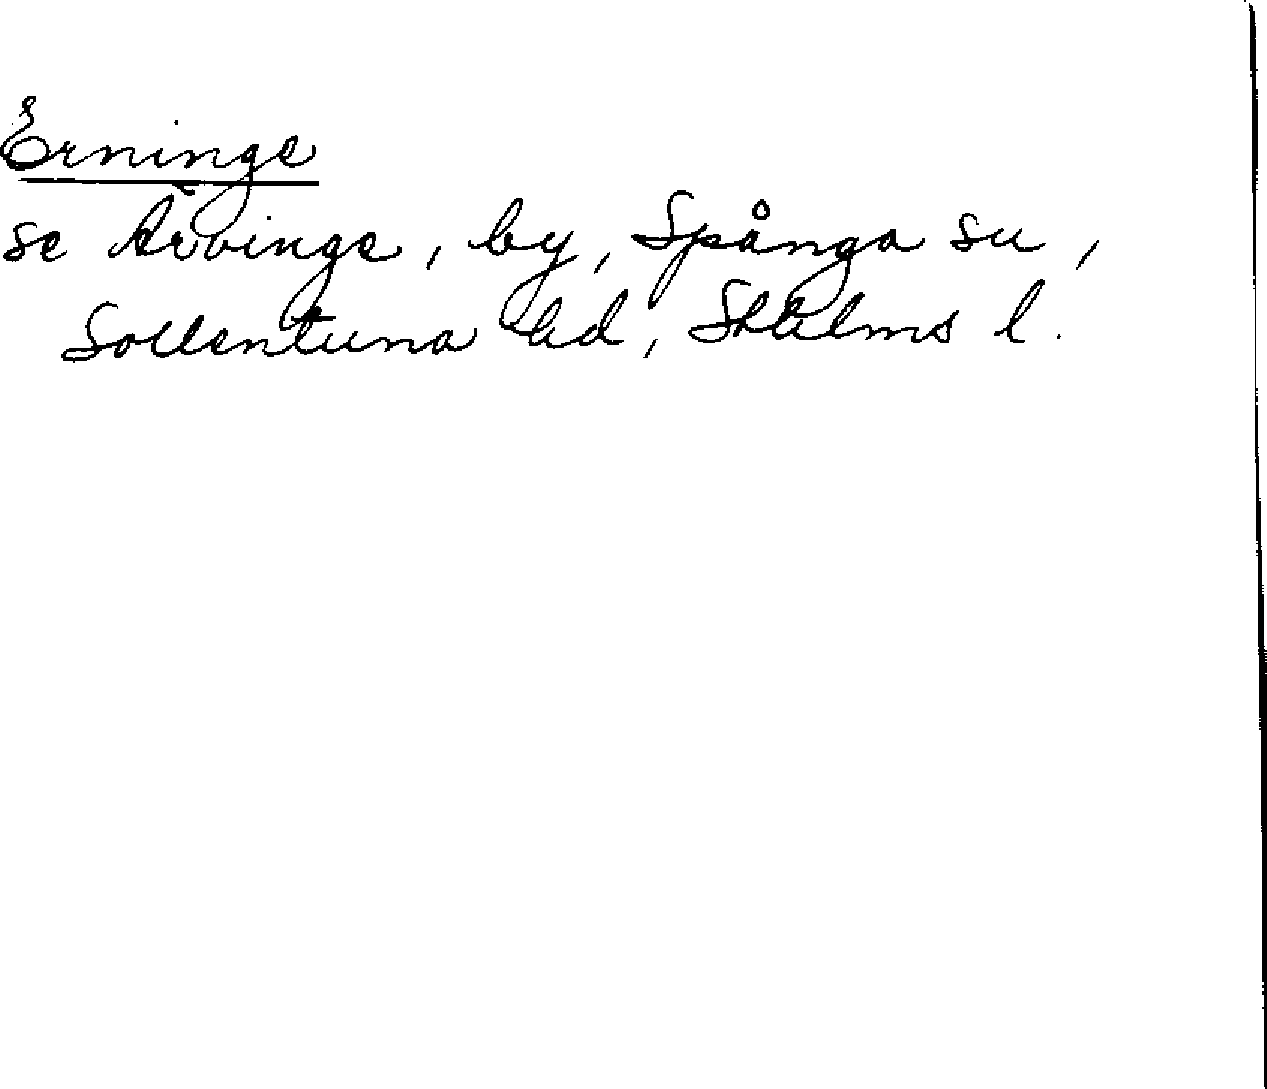 Erninge
se Ärvinge, by, Spånga sn,
Sollentuna hd, Sthlms l.